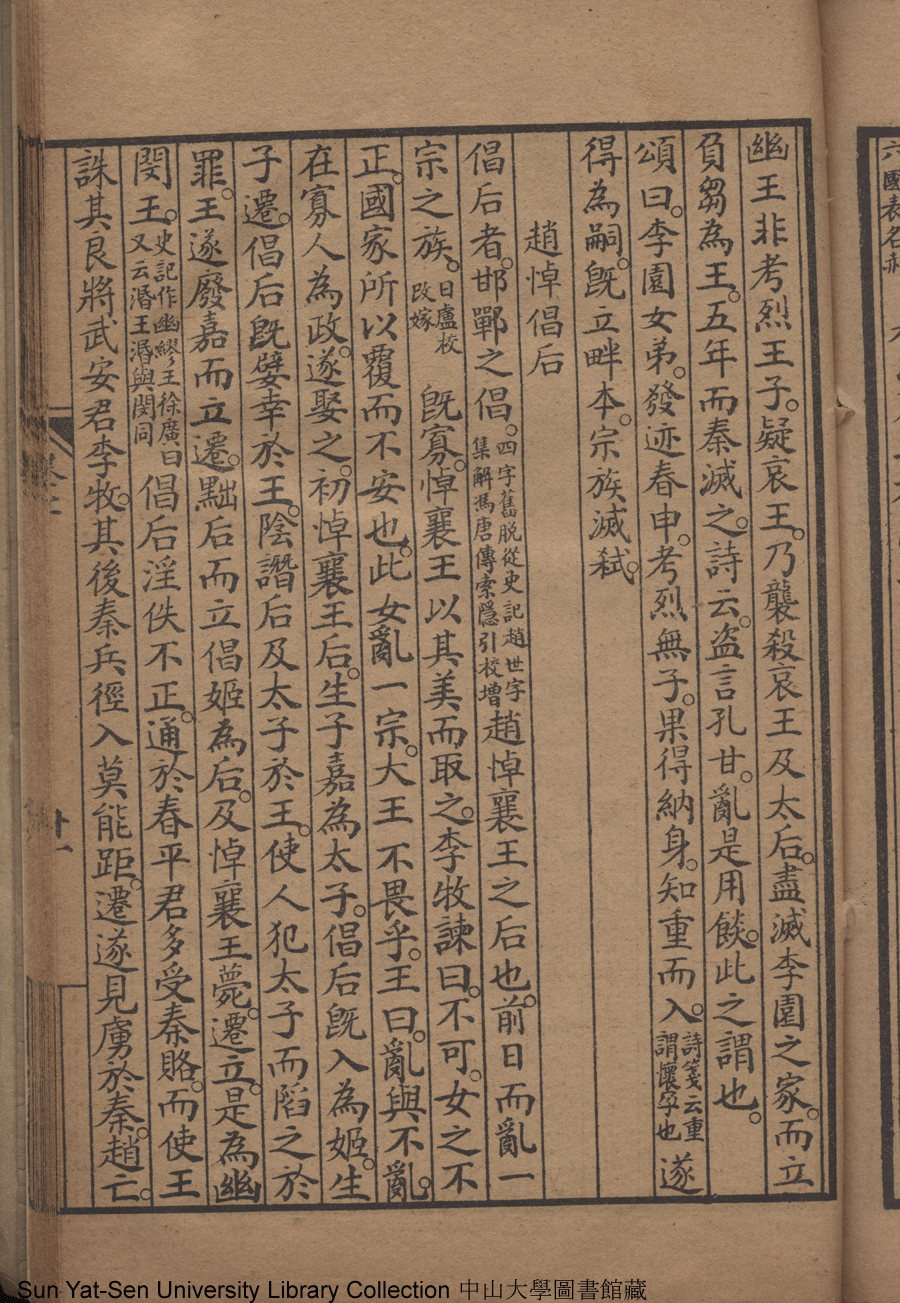 幽王非考烈王子。疑哀王。乃襲殺哀王及太后。盡滅李園之家。而立
負芻為王。五年而秦滅之。詩云。盜言孔甘。亂是用餤。此之謂也。
頌曰。李園女弟。發迹春申。考烈無子。果得納身。知重而入。詩箋云重謂懷孕也遂
得為嗣。既立畔本。宗族滅弒。
趙悼倡后
倡后者。邯鄲之倡。四字舊脫從史記趙世字集解馮唐傳索隱引校增趙悼襄王之后也。前日而亂一
宗之族。日盧校改嫁 既寡。悼襄王以其美而取之。李牧諫曰。不可。女之不
正。國家所以覆而不安也。此女亂一宗。大王不畏乎。王曰。亂與不亂。
在寡人為政。遂娶之。初悼襄王后。生子嘉為太子。倡后既入為姬。生
子遷。倡后既嬖幸於王。陰譖后及太子於王。使人犯太子而陷之於
罪。王遂廢嘉而立遷。黜后而立倡姬為后。及悼襄王薨。遷立。是為幽
閔王。史記作幽繆王徐廣曰又云湣王湣與閔同倡后淫佚不正。通於春平君多受秦賂。而使王
誅其良將武安君李牧。其後秦兵徑入莫能距。遷遂見虜於秦。趙亡。
十一
六國表名赤
Sun Yat-Sen University Library Collection 中山大學圖書館藏